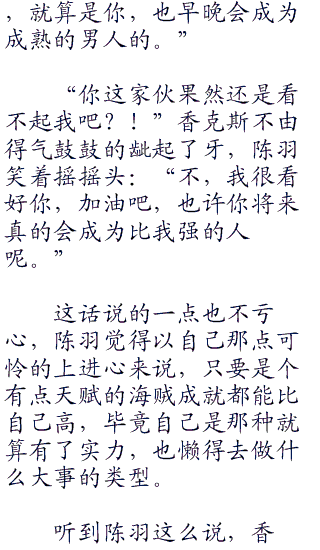 ，就算是你，也早晚会成为
成熟的男人的。”
“你这家伙果然还是看
不起我吧？！”香克斯不由
得气鼓鼓的龇起了牙，陈羽
笑着摇摇头：“不，我很看
好你，加油吧，也许你将来
真的会成为比我强的人
呢。”
这话说的一点也不亏
心，陈羽觉得以自己那点可
怜的上进心来说，只要是个
有点天赋的海贼成就都能比
自己高，毕竟自己是那种就
算有了实力，也懒得去做什
么大事的类型。
听到陈羽这么说，香